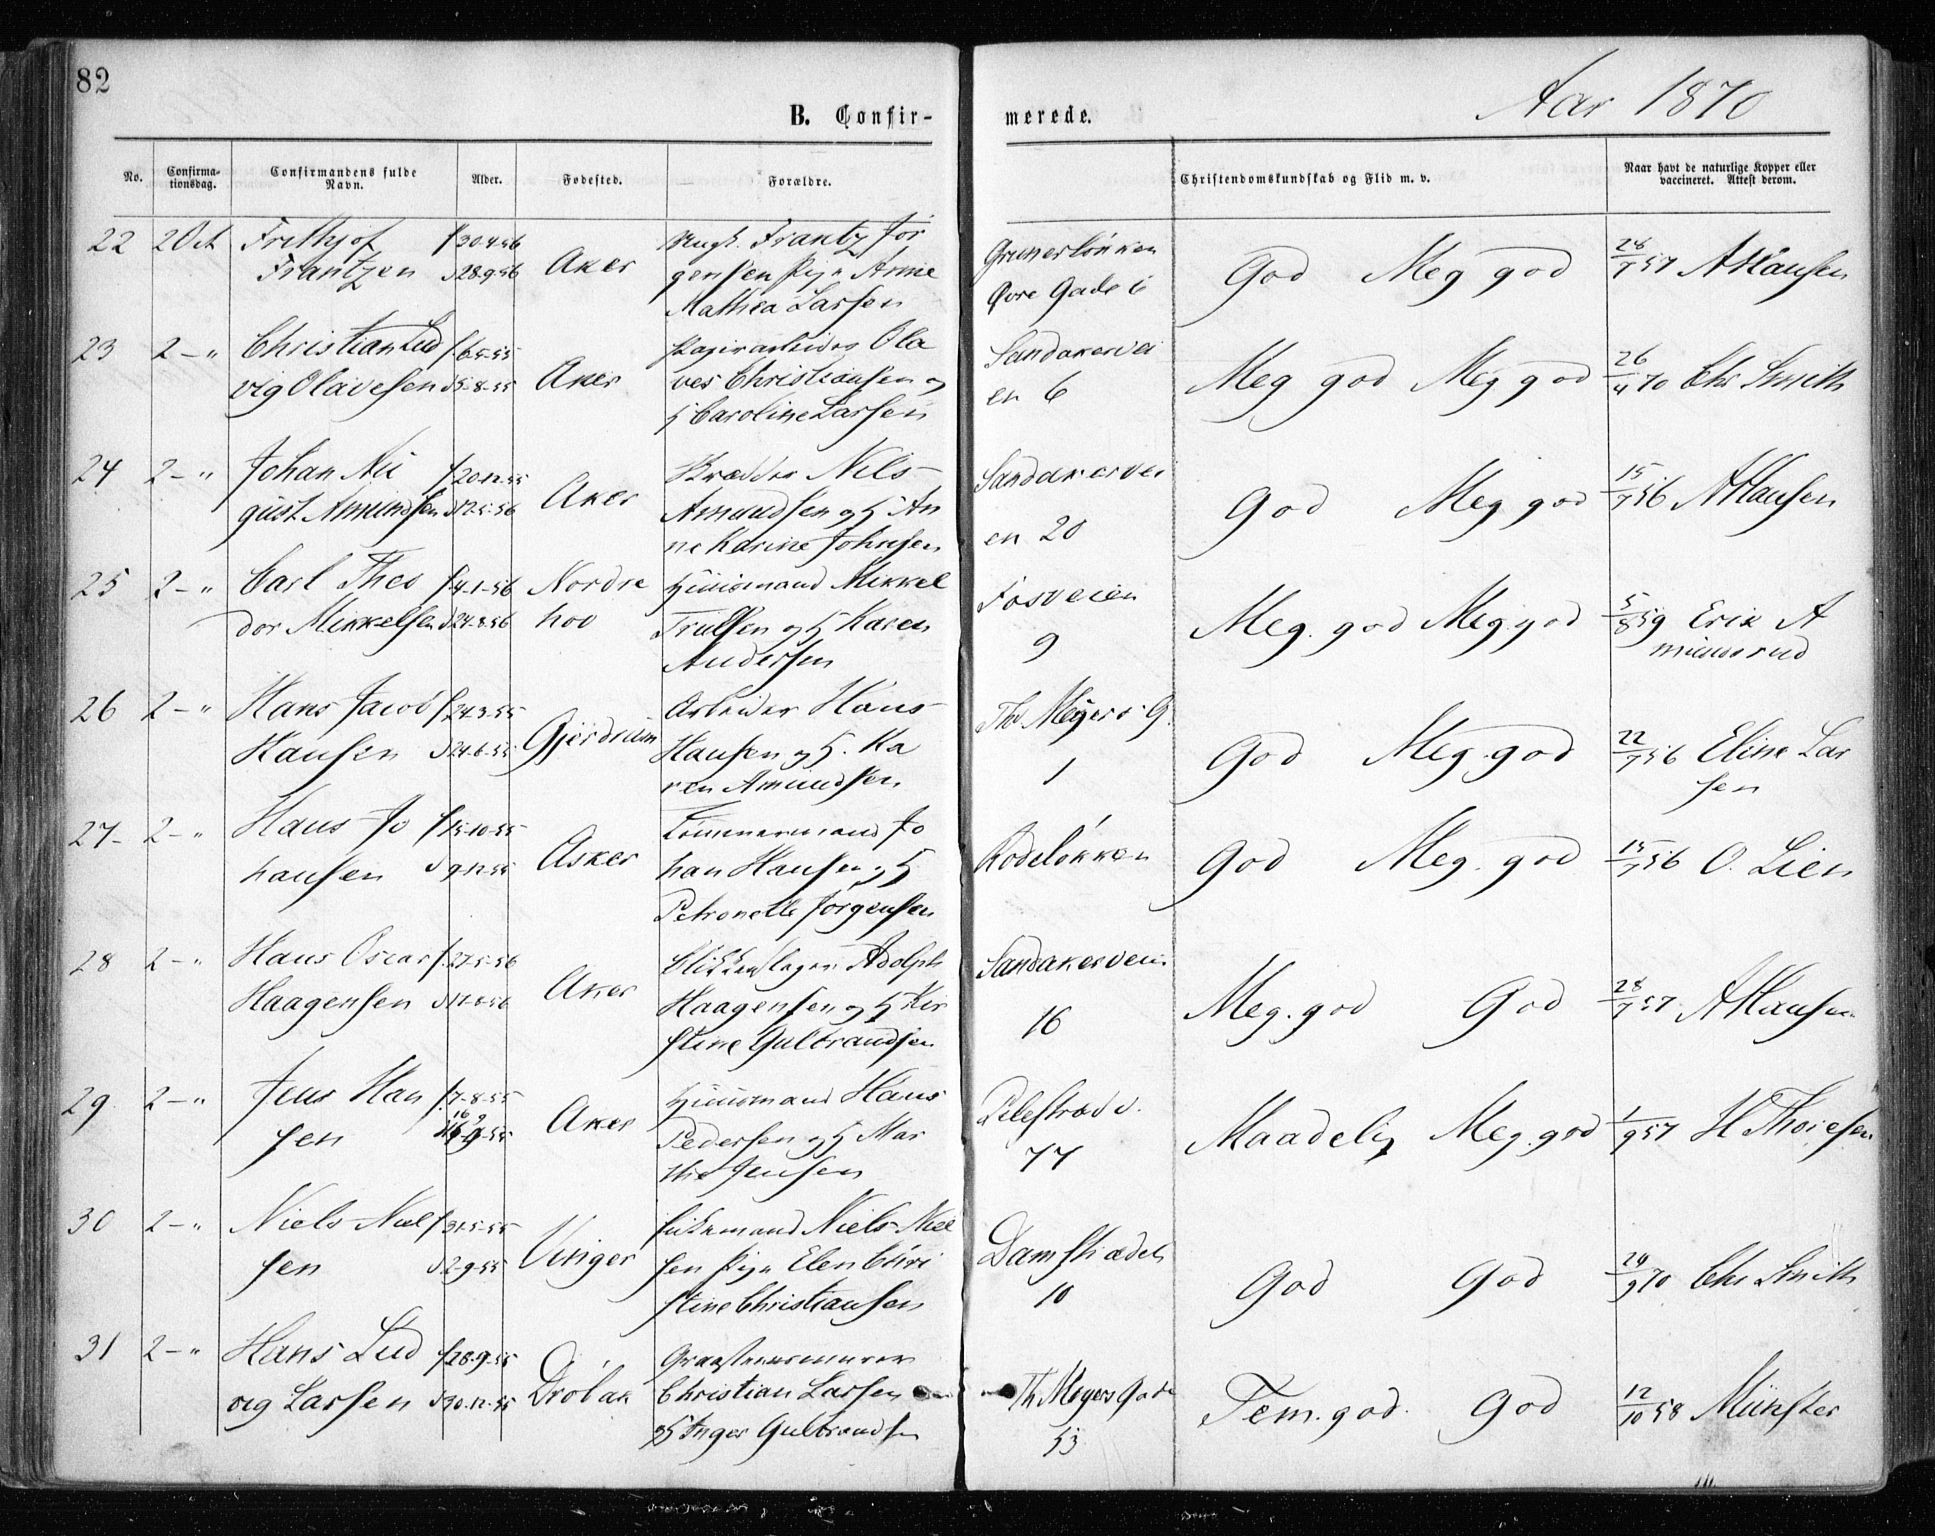 82
B. Confir-
merede.
Aar 1870
No.
Confirma-
tionsdag.
Confirmandens fulde
Navn.
Alder.
Fødested.
Forældre.
Christendomskundskab og Flid m. v.
Naar havt de naturlige Kopper eller
vaccineret. Attest derom.
22 2 Oct Frithjof f 30.4.56 Ungk. Frantz Jör
Frantzen d 28.9.56 Aker gensen Pig. Anne
Mathea Larsen
Grünerløkken
Øvre Gade 6
God Meg god 28/7 57 A Hansen
23 2 - " Christian Lud f. 6.5.55 Papirarbeider Ola
vig Olavesen d 5-8-55 Aker ves Christiansen og
H Caroline Larsen
Sandakervei
en 6
Meg god Meg god 26/4 70 Chr Smith
24 2 - " Johan Au f 20.12.55 Skrædder Nils
gust Amundsen d 12.5.56 Aker Amundsen og H An
ne Karine Johnsen
Sandakervei
en 20
God Meg god 15/7 56 A Hansen
25 2 - " Carl Theo f. 4-1-56 Nordre Huusmand Mikkel
dor Mikkelsen d 24.8.56 hov Trulsen og H Karen
Andersen
Fosveien
9
Meg. god Meg. god 5/8 59 Erik A
mundrud
26 2 - " Hans Jacob f. 24.3.55 Arbeider Hans
Hansen d 24.6.55 Gjerdrum Hansen og H. Ka
ren Amundsen
Th. Meyers G.
1
God Meg. god 22/7 56 Eline Lar
sen
27 2 - " Hans Jo f 15-10-55 Tømmermand Jo
hansen d 9.12.55 Asker han Hansen og H
Petronelle Jørgensen
Rodeløkken
God Meg. god 15/7 56 O. Lien
28 2 - " Hans Oscar f. 27-5-56 Blikkenslager Adolph
Haagensen d 11-8-56 Aker Haagensen og H Kir
stine Gulbrandsen
Sandakerveien
16
Meg. god God 28/7 57 A Hansen
29 2 - " Jens Han f. 7-8-55 Huusmand Hans
sen 16 9-55 Aker Pedersen og H Mar
the Jensen
Pilestræde
77
Maadelig Meg. god 1/9 57 H Thoresen
30 2 - " Niels Niel f 31.5.55 Niels Niel
sen d 2-9-55 Vinger sen Pig. Elen Chri
stine Christiansen
Damstrædet
10
God God 29/9 70 Chr Smith
31 2 - " Hans Lud f 28.9.55 Graastensmurer
vig Larsen d 30.12.55 Drøbak Christian Larsen
og H Inger Gulbrandsen
Th. Meyers Gade
53
Tem. god. God 12/10 58 Münster